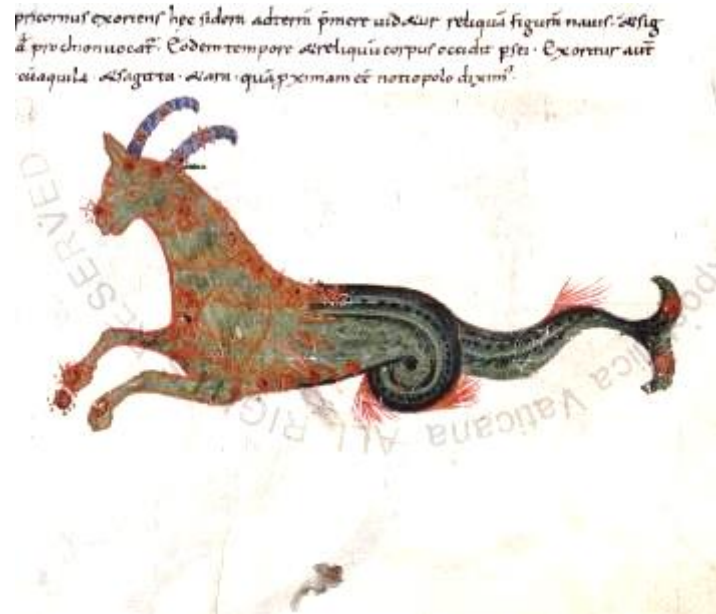 pricornus exoriens hec sidera ad terrã p̃mere uidẽtur reliquã figurã nauis · & sig
d̃ prochion uocat̃ · Eodem tempore & reliquũ corpus occidit p̃sei · Exoritur aut̃
cũ aquila · & sagitta · & ara · quã p̱ximam eẽ notio polo diximꝰ
RESERVED
ALL RIG
Vaticana